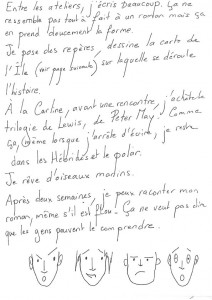 Entre les ateliers, j'écris beaucoup. Ça ne
ressemble pas tout à fait à un roman mais ça
en prend doucement la forme.
Je pose des repères, dessine la carte de
l'Île (voir page suivante) sur laquelle se déroule
l'histoire.
À la Carline, avant une rencontre, j'achète la
trilogie de Lewis, de Peter May. Comme
ça, même lorsque j'arrête d'écrire, je reste
dans les Hébrides et le polar.
Je rêve d'oiseaux marins.
Après deux semaines, je peux raconter mon
roman, même s'il est flou. Ça ne veut pas dire
que les gens peuvent le comprendre.